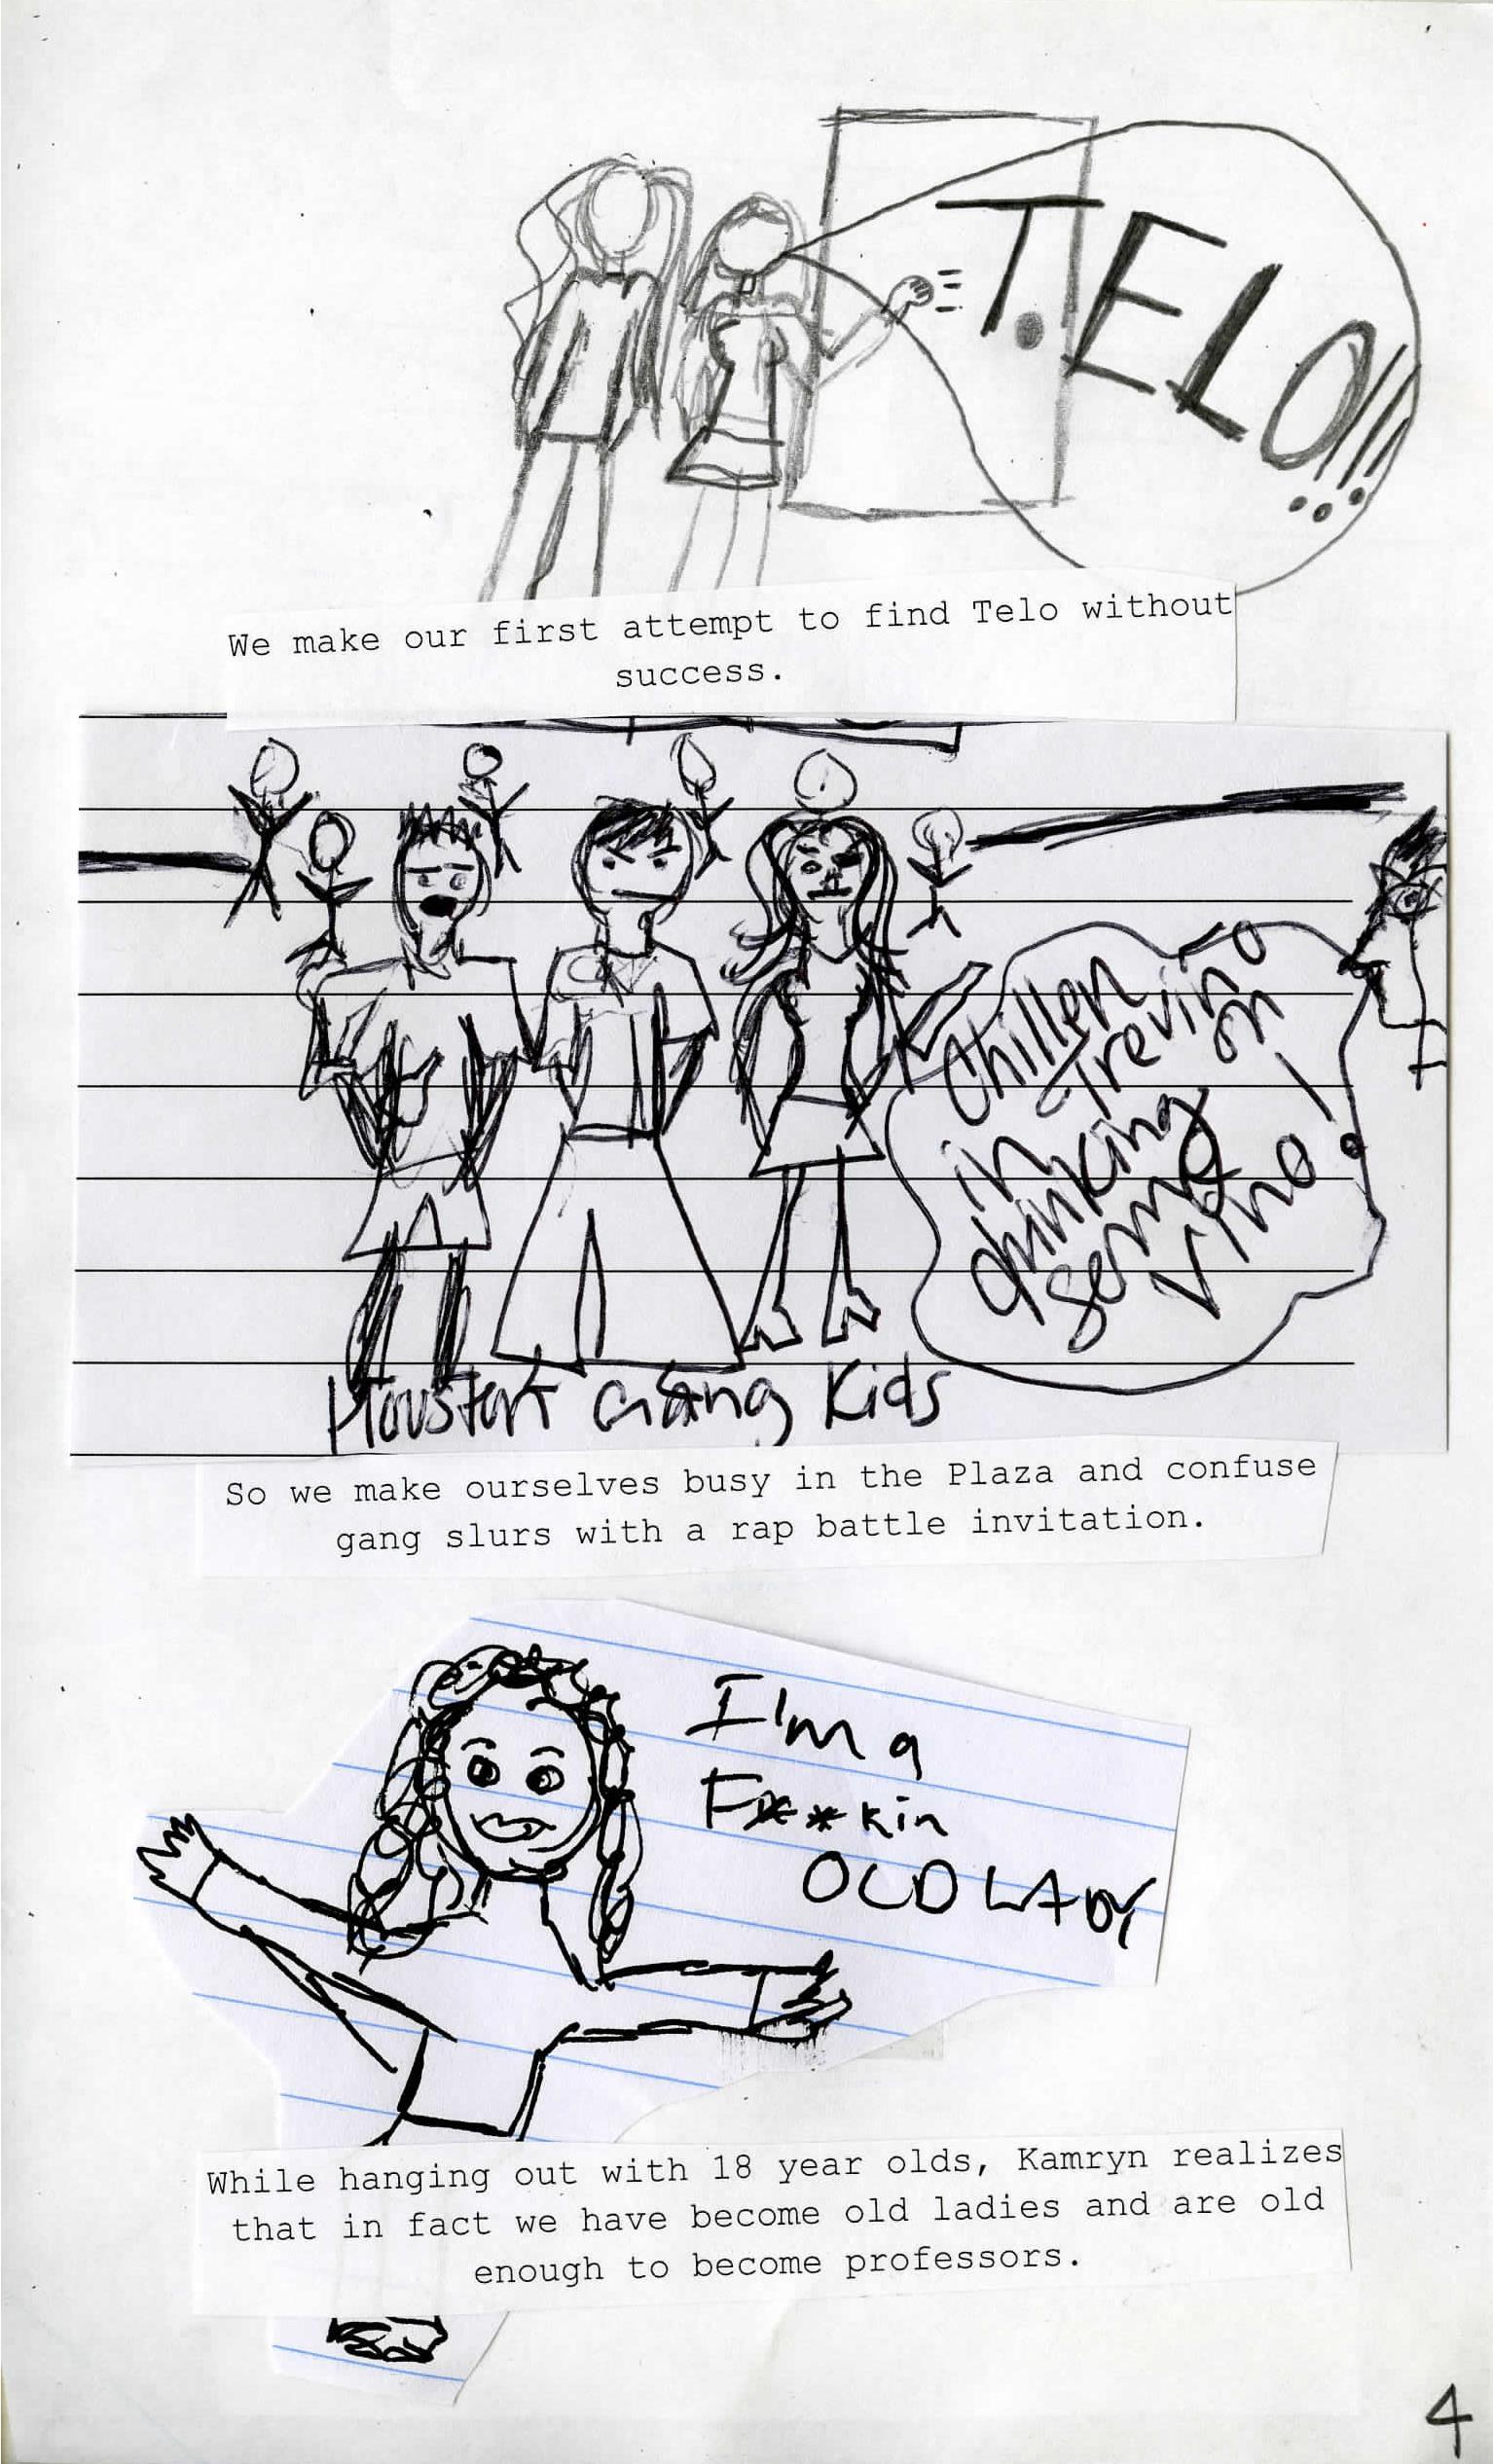 T.ELO!!!
We make our first attempt to find Telo without
success.
Chillen
in Trevino
drinking on
some
vino!
Houston Gang Kids
So we make ourselves busy in the Plaza and confuse
gang slurs with a rap battle invitation.
I'm a
F**kin
OLD LADY
While hanging out with 18 year olds, Kamryn realizes
that in fact we have become old ladies and are old
enough to become professors.
4